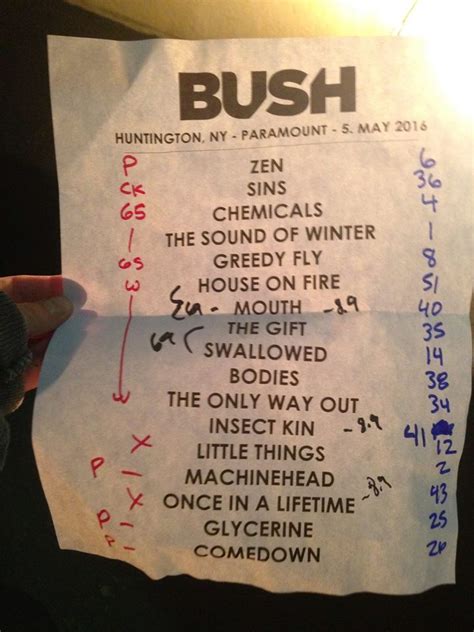 BUSH
HUNTINGTON, NY - PARAMOUNT - 5. MAY 2016
P ZEN 6
CK SINS 36
CHEMICALS 4
THE SOUND OF WINTER 1
GREEDY FLY 8
W HOUSE ON FIRE 51
MOUTH -8.9 40
THE GIFT 35
SWALLOWED 14
BODIES 38
THE ONLY WAY OUT 34
INSECT KIN -8.9 41
X LITTLE THINGS 12
P - MACHINEHEAD 2
X ONCE IN A LIFETIME -8.9 43
P - GLYCERINE 25
P - COMEDOWN 26